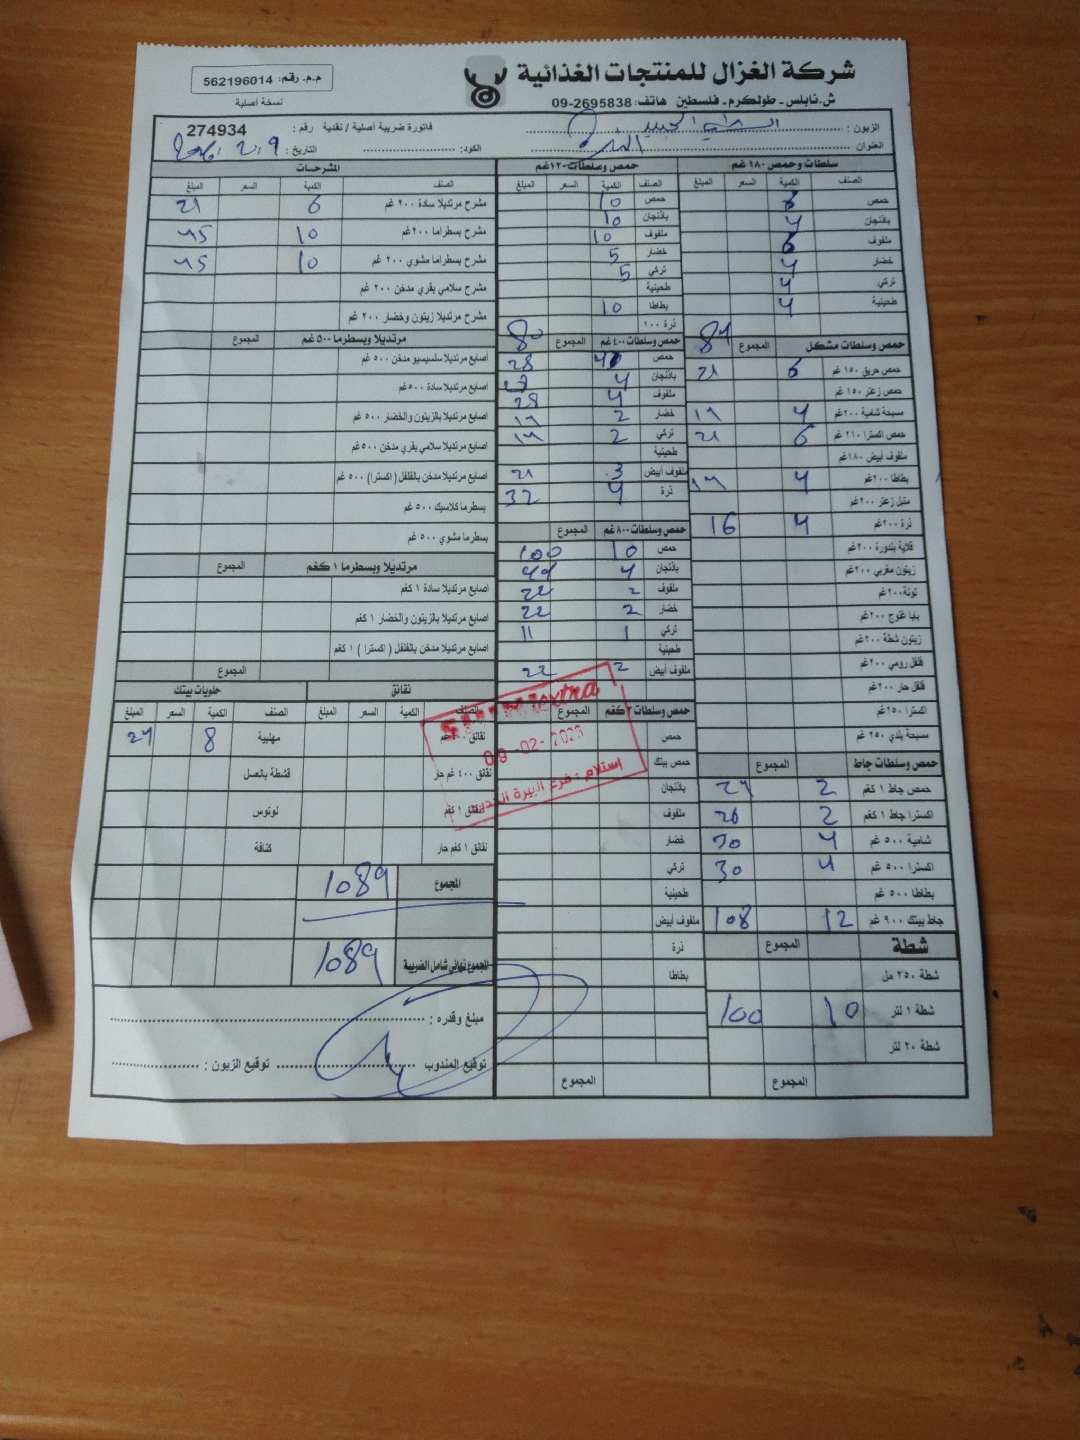 شركة الغزال للمنتجات الغذائية
ش.نابلس - طولكرم - فلسطين هاتف: 09-2695838
م.م. رقم: 562196014
نسخة أصلية
الزبون :
العنوان :
فاتورة ضريبة أصلية / نقدية رقم : 274934
الكود: التاريخ : 9 . 2 .
سلطات وحمص ١٨٠ غم
الصنف الكمية السعر المبلغ
حمص 6
باذنجان 4
ملفوف 6
خضار 4
تركي 4
طحينية 4
حمص وسلطات مشكل المجموع 84
حمص حريق ١٥٠ غم 6 21
حمص زعتر ١٥٠ غم
مسبحة شامية ٢٠٠غم 4 14
حمص اكسترا ٢١٠ غم 6 21
ملفوف أبيض ١٨٠غم
بطاطا ٢٠٠غم 4 14
متبل زعتر ٢٠٠ غم
ذرة ٢٠٠غم 4 16
قلاية بندورة ٢٠٠غم
زيتون مغربي ٢٠٠غم
تونة٢٠٠غم
بابا غنوج ٢٠٠غم
زيتون شطة ٢٠٠غم
فلفل رومي ٢٠٠غم
فلفل حار ٢٠٠غم
اكسترا ٢٥٠غم
مسبحة بلدي ٢٥٠ غم
حمص وسلطات جاط المجموع
حمص جاط ١ كغم 2 24
اكسترا جاط ١ كغم 2 26
شامية ٥٠٠ غم 4 30
اكسترا ٥٠٠ غم 4 30
بطاطا ٥٠٠ غم
جاط بيتك ٩٠٠ غم 12 108
شطة المجموع
شطة ٢٥٠ مل
شطة ١ لتر 10 100
شطة ٢٠ لتر
المجموع
حمص وسلطات ١٢٠غم
الصنف الكمية السعر المبلغ
حمص 10
باذنجان 10
ملفوف 10
خضار 5
تركي 5
طحينية
بطاطا 10
ذرة ١٠٠
حمص وسلطات ٤٠٠غم المجموع 80
حمص 28
باذنجان 4
ملفوف 4 28
خضار 2 14
تركي 2 14
طحينية
ملفوف أبيض 3 21
ذرة 4 32
حمص وسلطات ٨٠٠غم المجموع
حمص 10 100
باذنجان 4 44
ملفوف 2 22
خضار 2 22
تركي 1 11
طحينية
ملفوف أبيض 2 22
حمص وسلطات ٣كغم المجموع
حمص
حمص بيتك
باذنجان
ملفوف
خضار
تركي
طحينية
ملفوف أبيض
ذرة
بطاطا
المجموع
المشرحات
الصنف الكمية السعر المبلغ
مشرح مرتديلا سادة ٢٠٠ غم 6 21
مشرح بسطراما ٢٠٠غم 10 45
مشرح بسطراما مشوي ٢٠٠ غم 10 45
مشرح سلامي بقري مدخن ٢٠٠ غم
مشرح مرتديلا زيتون وخضار ٢٠٠ غم
مرتديلا وبسطرما ٥٠٠غم المجموع
اصابع مرتديلا سلسيسيو مدخن ٥٠٠ غم
اصابع مرتديلا سادة ٥٠٠غم
اصابع مرتديلا بالزيتون والخضار ٥٠٠ غم
اصابع مرتديلا سلامي بقري مدخن ٥٠٠غم
اصابع مرتديلا مدخن بالفلفل ( اكسترا) ٥٠٠ غم
بسطرما كلاسيك ٥٠٠ غم
بسطرما مشوي ٥٠٠ غم
مرتديلا وبسطرما ١ كغم المجموع
اصابع مرتديلا سادة ١ كغم
اصابع مرتديلا بالزيتون والخضار ١ كغم
اصابع مرتديلا مدخن بالفلفل ( اكسترا ) ١ كغم
المجموع
نقانق
الكمية السعر المبلغ
نقانق غم
نقانق ٤٠٠ غم حار
نقانق ١ كغم
نقانق ١ كغم حار
حلويات بيتك
الصنف الكمية السعر المبلغ
مهلبية 8 24
قشطة بالعسل
لوتوس
كنافة
extra
09 -02- 2026
إستلام : فرع البيرة
المجموع 1089
المجموع نهائي شامل الضريبة 1089
مبلغ وقدره :
توقيع المندوب توقيع الزبون :